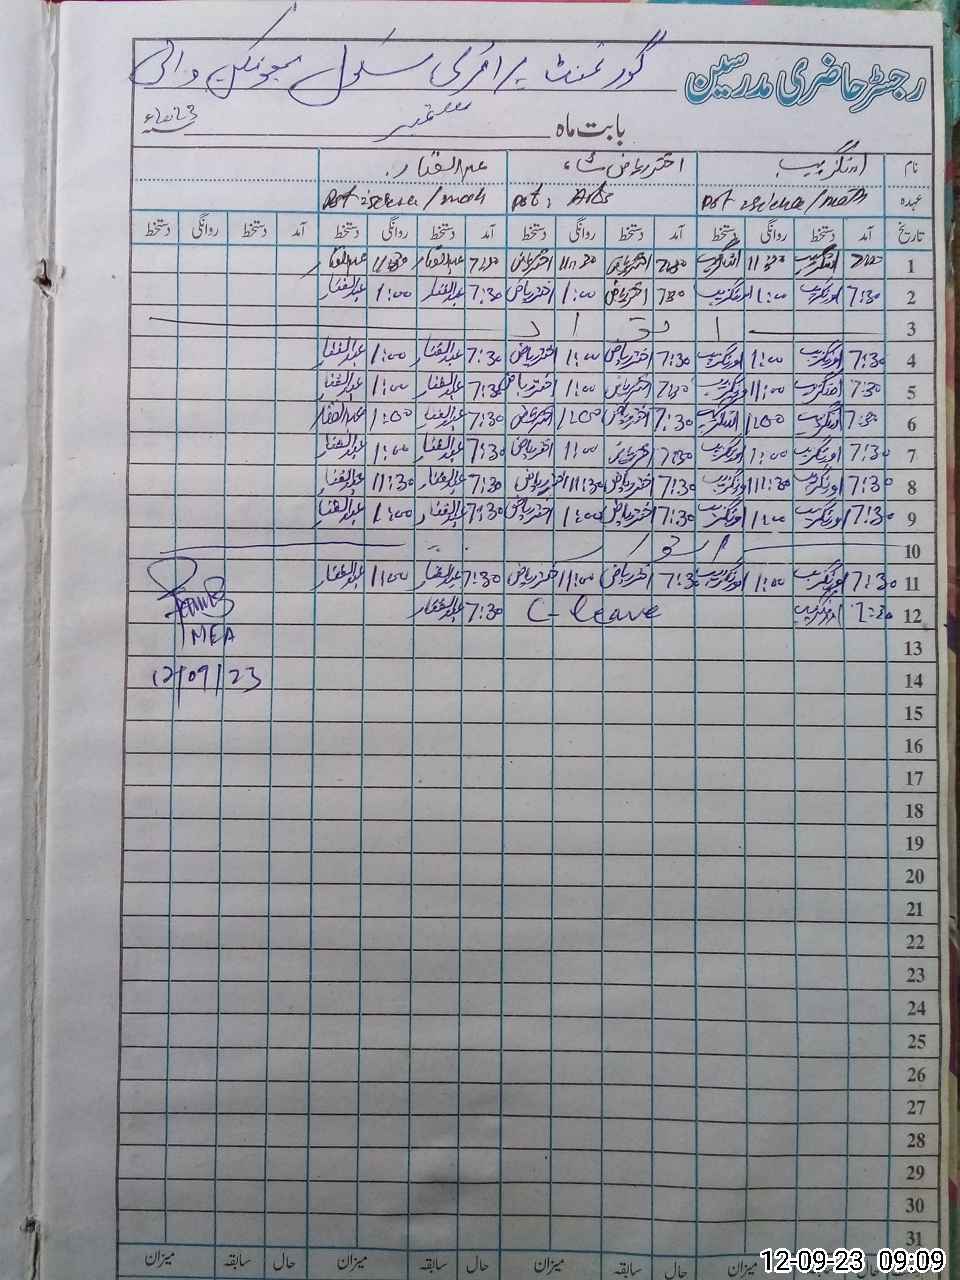 رجسٹر حاضری مدرسین
گورنمنٹ پرائمری سکول
بابت ماہ ستمبر 2023ء
نام اورنگزیب اختر ریاض عبدالغفار
عہدہ Pst science/math Pst: Arts Pst science/math
تاریخ آمد دستخط روانگی دستخط آمد دستخط روانگی دستخط آمد دستخط روانگی دستخط آمد دستخط روانگی دستخط
1 اورنگزیب 11:30 اورنگزیب 7:30 اختر ریاض 11:30 اختر ریاض 7:30 عبدالغفار 11:30 عبدالغفار
2 7:30 اورنگزیب 1:00 اورنگزیب 7:30 اختر ریاض 1:00 اختر ریاض 7:30 عبدالغفار 1:00 عبدالغفار
3 اتوار
4 7:30 اورنگزیب 1:00 اورنگزیب 7:30 اختر ریاض 1:00 اختر ریاض 7:30 عبدالغفار 1:00 عبدالغفار
5 7:30 اورنگزیب 1:00 اورنگزیب 7:30 اختر ریاض 1:00 اختر ریاض 7:30 عبدالغفار 1:00 عبدالغفار
6 7:30 اورنگزیب 1:00 اورنگزیب 7:30 اختر ریاض 1:00 اختر ریاض 7:30 عبدالغفار 1:00 عبدالغفار
7 7:30 اورنگزیب 1:00 اورنگزیب 7:30 اختر ریاض 1:00 اختر ریاض 7:30 عبدالغفار 1:00 عبدالغفار
8 7:30 اورنگزیب 11:30 اورنگزیب 7:30 اختر ریاض 11:30 اختر ریاض 7:30 عبدالغفار 11:30 عبدالغفار
9 7:30 اورنگزیب 1:00 اورنگزیب 7:30 اختر ریاض 1:00 اختر ریاض 7:30 عبدالغفار 1:00 عبدالغفار
10 اتوار
11 7:30 اورنگزیب 1:00 اورنگزیب 7:30 اختر ریاض 1:00 اختر ریاض 7:30 عبدالغفار 1:00 عبدالغفار
12 7:30 اورنگزیب C-leave 7:30 عبدالغفار
MEA
13
14 12/09/23
15
16
17
18
19
20
21
22
23
24
25
26
27
28
29
30
31
میزان حال سابقہ میزان حال سابقہ میزان حال سابقہ میزان
12-09-23 09:09